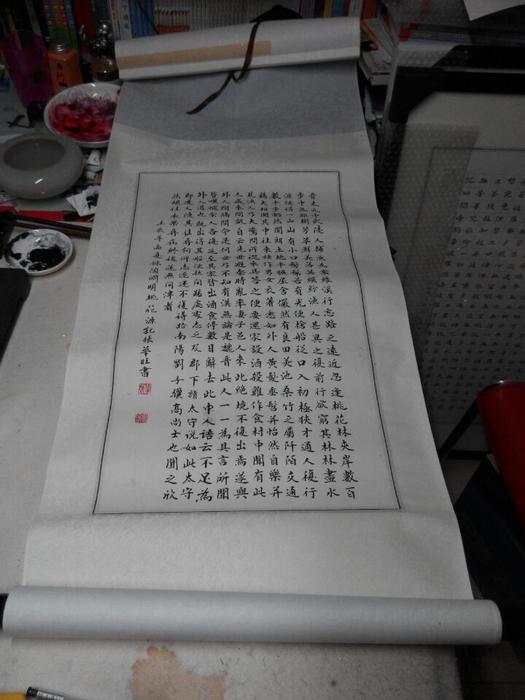 晉太元中武陵人捕魚為業緣溪行忘路之遠近忽逢桃花林夾岸數百
步中無雜樹芳草鮮美落英繽紛漁人甚異之復前行欲窮其林林盡水
源便得一山山有小口髣髴若有光便捨船從口入初極狹才通人復行
數十步豁然開朗土地平曠屋舍儼然有良田美池桑竹之屬阡陌交通
雞犬相聞其中往來種作男女衣著悉如外人黃髮垂髫並怡然自樂
見漁人乃大驚問所從來具答之便要還家設酒殺雞作食村中聞有此
人咸來問訊自云先世避秦時亂率妻子邑人來此絕境不復出焉遂與
外人間隔問今是何世乃不知有漢無論魏晉此人一一為具言所聞
皆嘆惋餘人各復延至其家皆出酒食停數日辭去此中人語云不足為
外人道也既出得其船便扶向路處處志之及郡下詣太守說如此太守
即遣人隨其往尋向所志遂迷不復得路南陽劉子驥高尚士也聞之欣
然規往未果尋病終後遂無問津者
壬辰年孟夏錄陶淵明桃花源記張華旺書